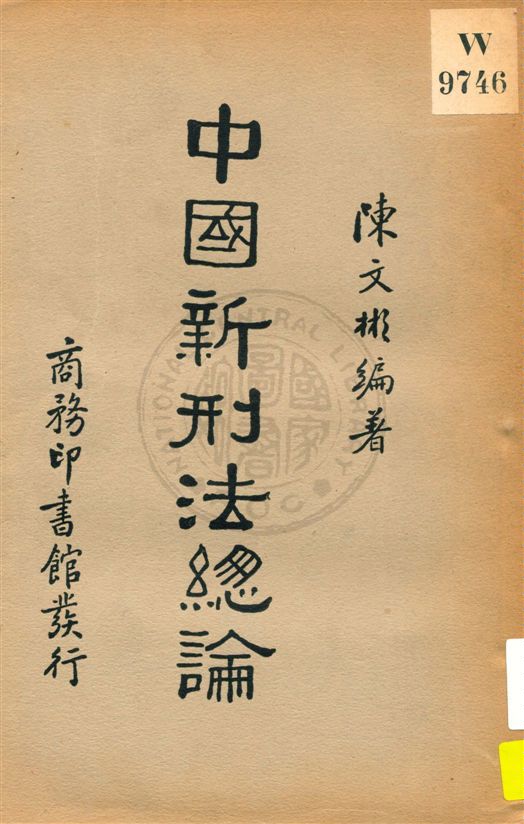 W
9746
陳文彬編著
中國新刑法總論
商務印書館發行
NATIONAL CENTRAL LIBRARY
國家圖書館